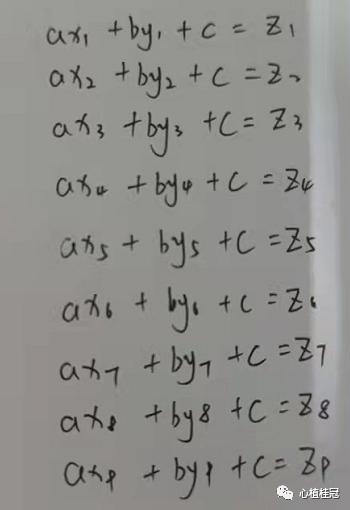 ax₁ + by₁ + c = z₁
ax₂ + by₂ + c = z₂
ax₃ + by₃ + c = z₃
ax₄ + by₄ + c = z₄
ax₅ + by₅ + c = z₅
ax₆ + by₆ + c = z₆
ax₇ + by₇ + c = z₇
ax₈ + by₈ + c = z₈
ax₉ + by₉ + c = z₉
心植桂冠